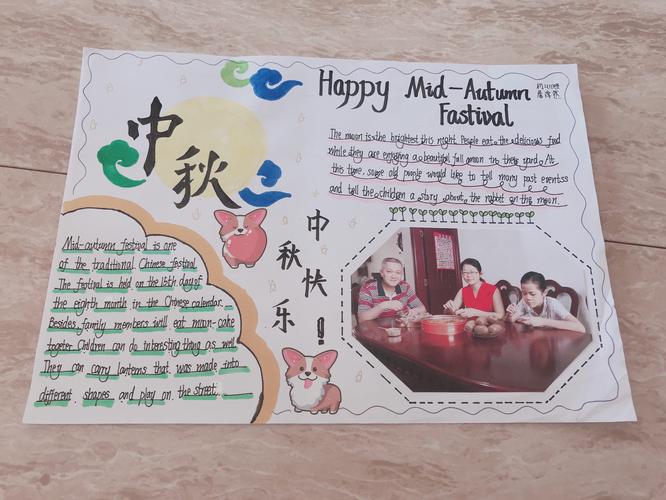 Happy Mid-Autumn
Fastival
中秋
The moon is the brightest this night. People eat the delicious food
while they are enjoying a beautiful full moon in their yard. At
this time, some old people would like to tell many past eventss
and tell the children a story about the rabbit on the moon.
中秋快乐!
Mid-autumn festival is one
of the traditional Chinese festival.
The festival is held on the 15th day of
the eighth month in the Chinese calendar.
Besides, family members will eat moon-cake
together. Children can do interesting thing as well
They can carry lanterns that was made into
different shapes and play on the street.